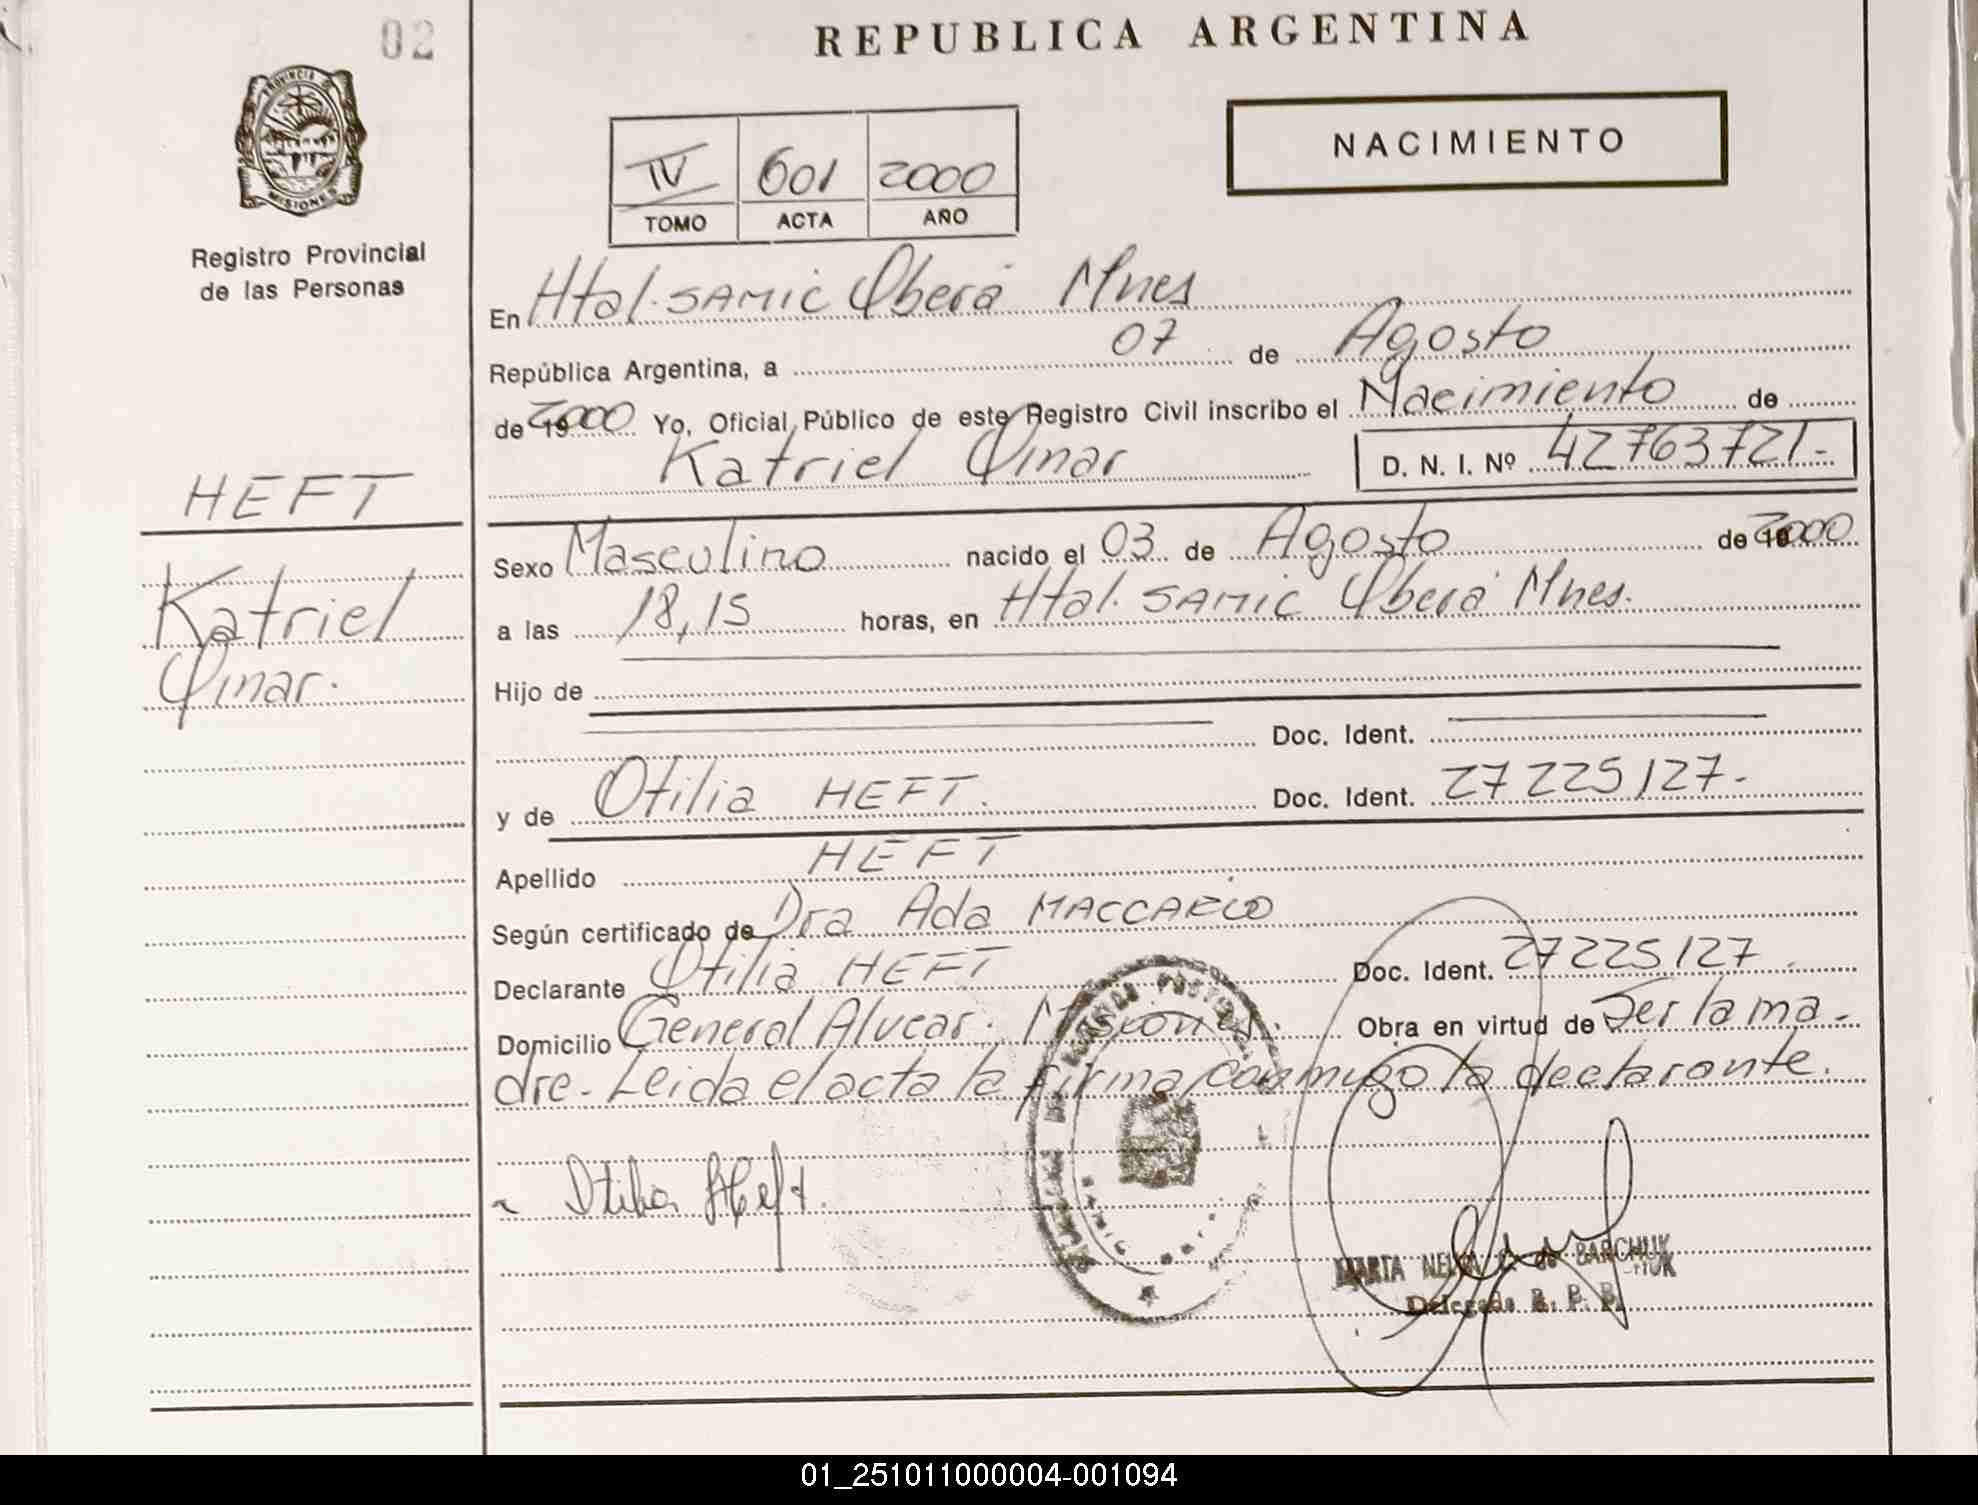 02
REPUBLICA ARGENTINA
PROVINCIA DE
MISIONES
Registro Provincial
de las Personas
IV 601 2000
TOMO ACTA AÑO
NACIMIENTO
En Htal. SAMIC Oberá Mnes
República Argentina, a 07 de Agosto
de 2000 Yo, Oficial Público de este Registro Civil inscribo el Nacimiento de
Katriel Omar D. N. I. Nº 42763721-
HEFT
Katriel
Omar.
Sexo Masculino nacido el 03 de Agosto de 2000
a las 18,15 horas, en Htal. SAMIC Oberá Mnes.
Hijo de
Doc. Ident.
y de Otilia HEFT. Doc. Ident. 27225127-
Apellido HEFT
Según certificado de Dra Ada MACCARIO
Declarante Otilia HEFT Doc. Ident. 27225127
Domicilio General Alvear. Misiones. Obra en virtud de Ser la ma-
dre- Leida el acta la firma conmigo la declarante.
Otilia Heft.
MARTA NELVA C. de BARCHUK
Delegada R. P. P.
01_251011000004-001094